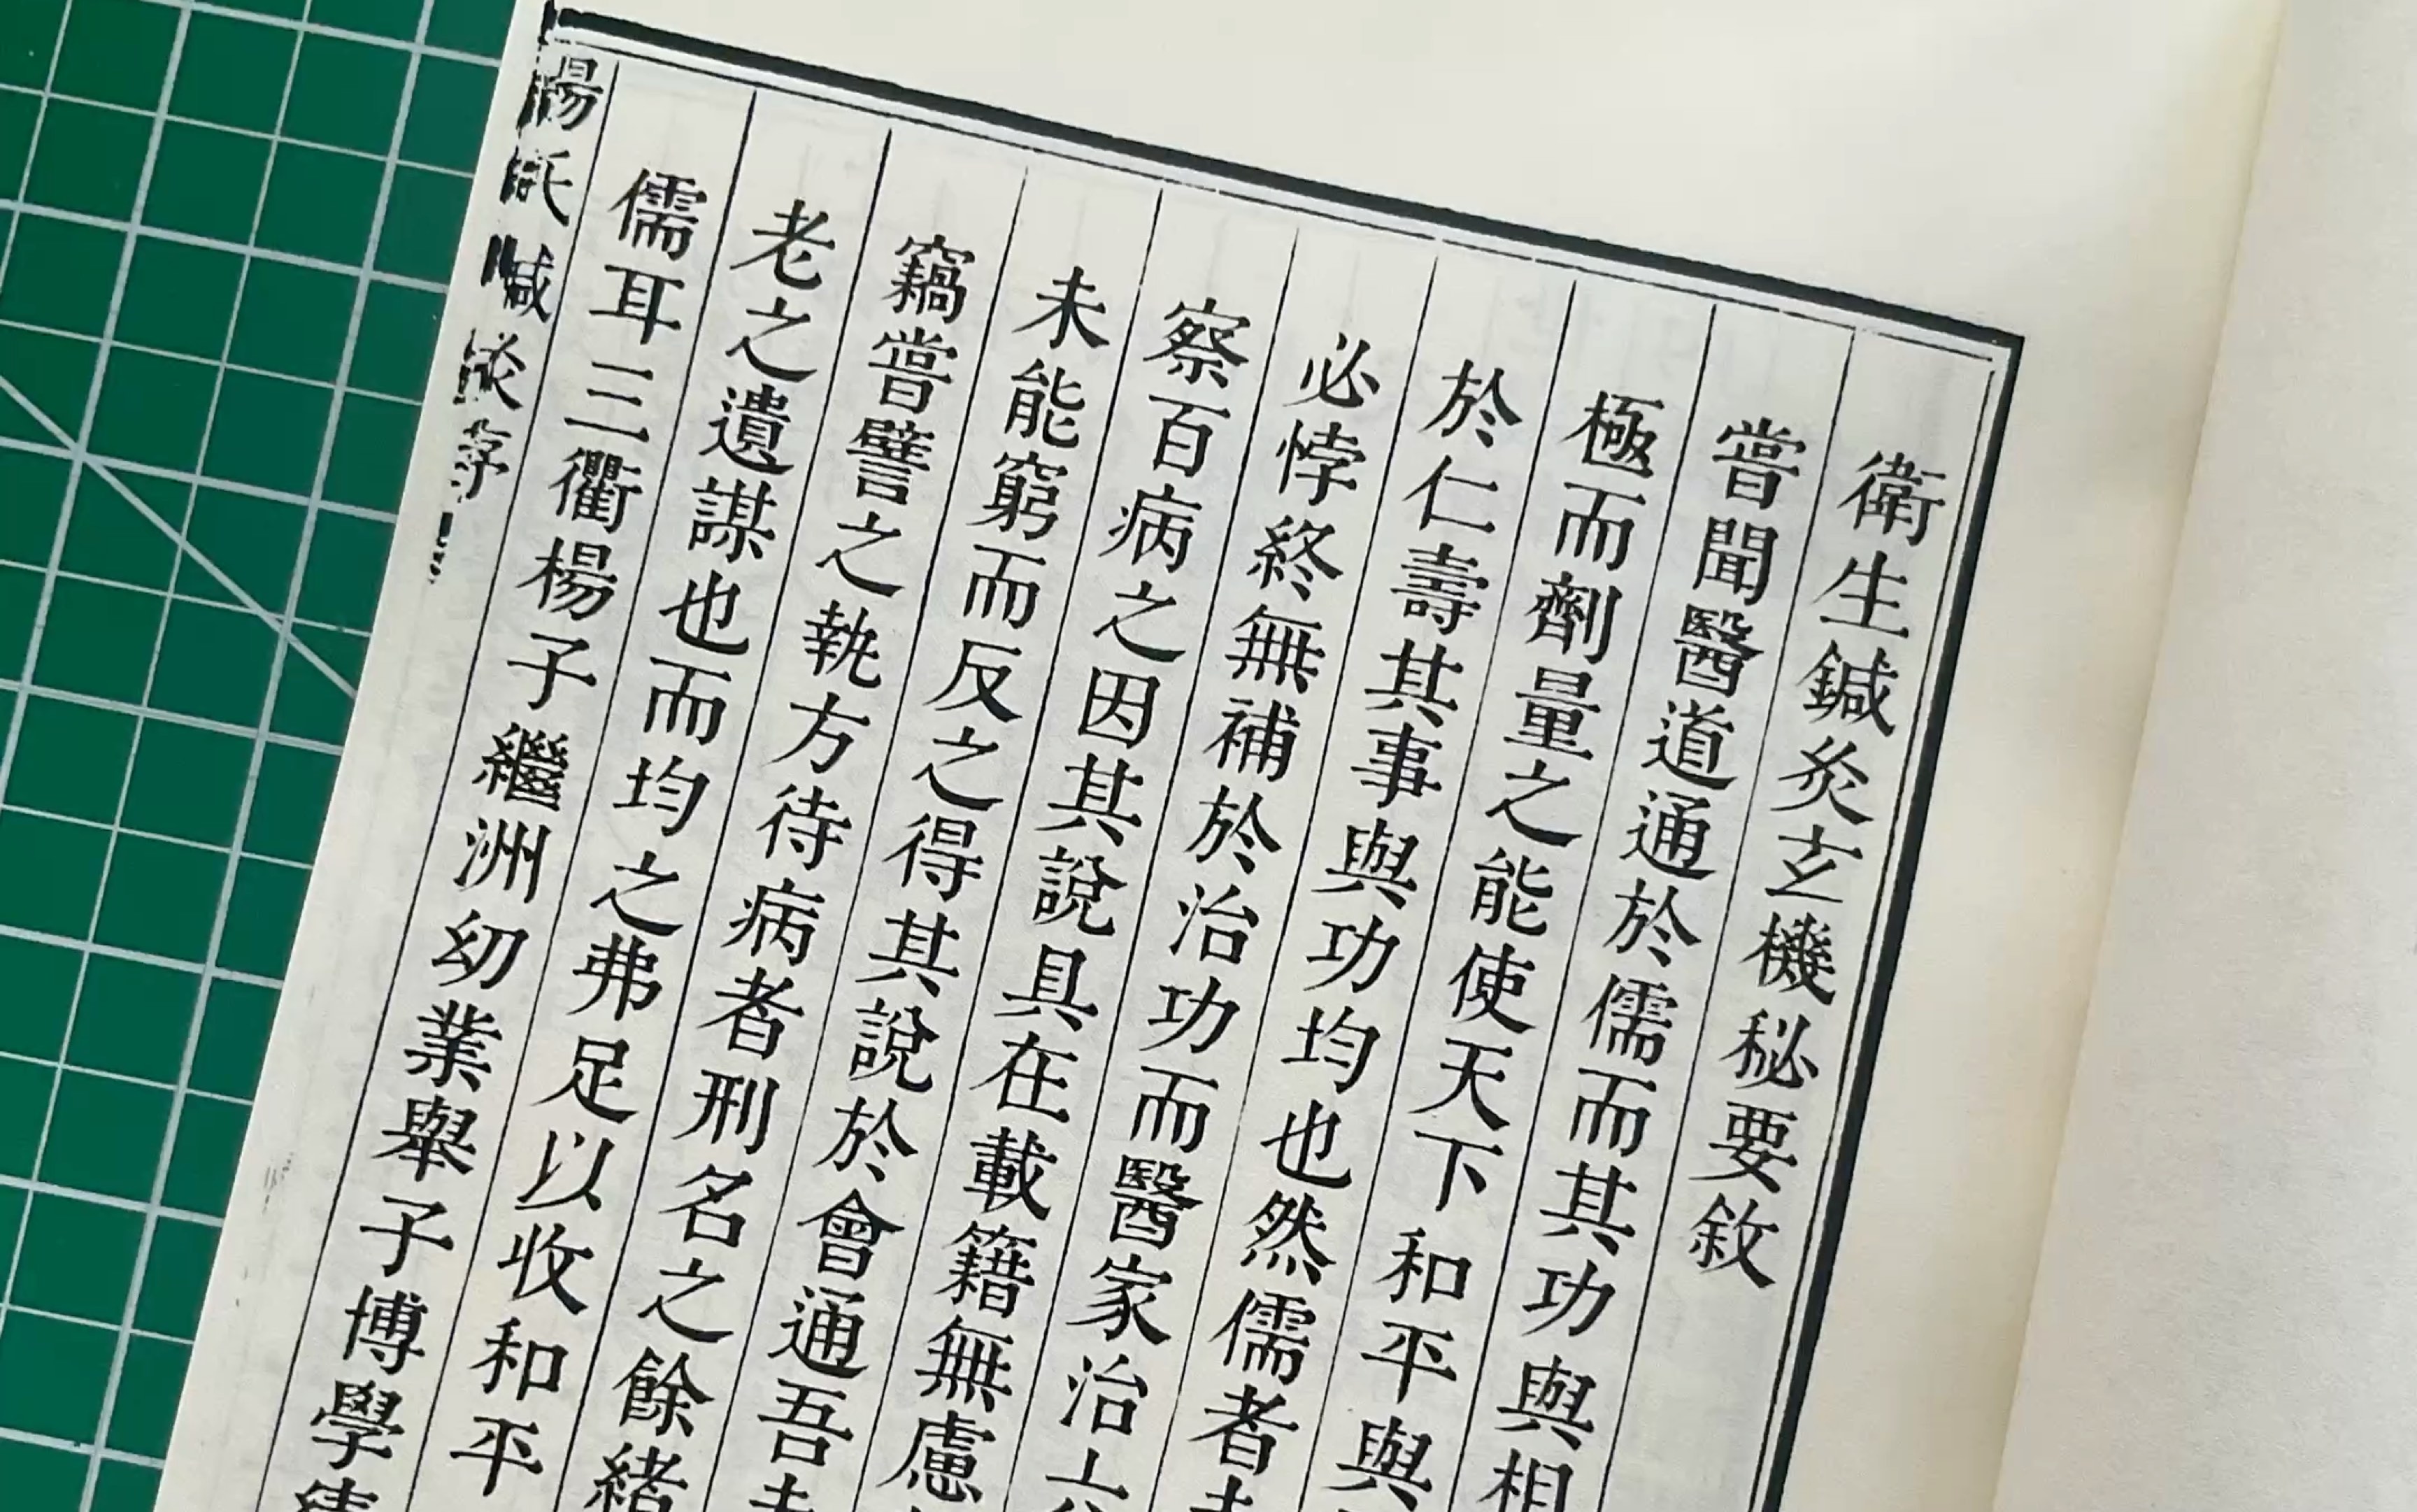 衛生鍼灸玄機秘要敘
嘗聞醫道通於儒而其功與相
極而劑量之能使天下和平與
於仁壽其事與功均也然儒者
必悖終無補於治功而醫家治
察百病之因其說具在載籍無慮
未能窮而反之得其說於會通吾
竊嘗譬之執方待病者刑名之餘緒
老之遺謀也而均之弗足以收和平
儒耳三衢楊子繼洲幼業舉子博學